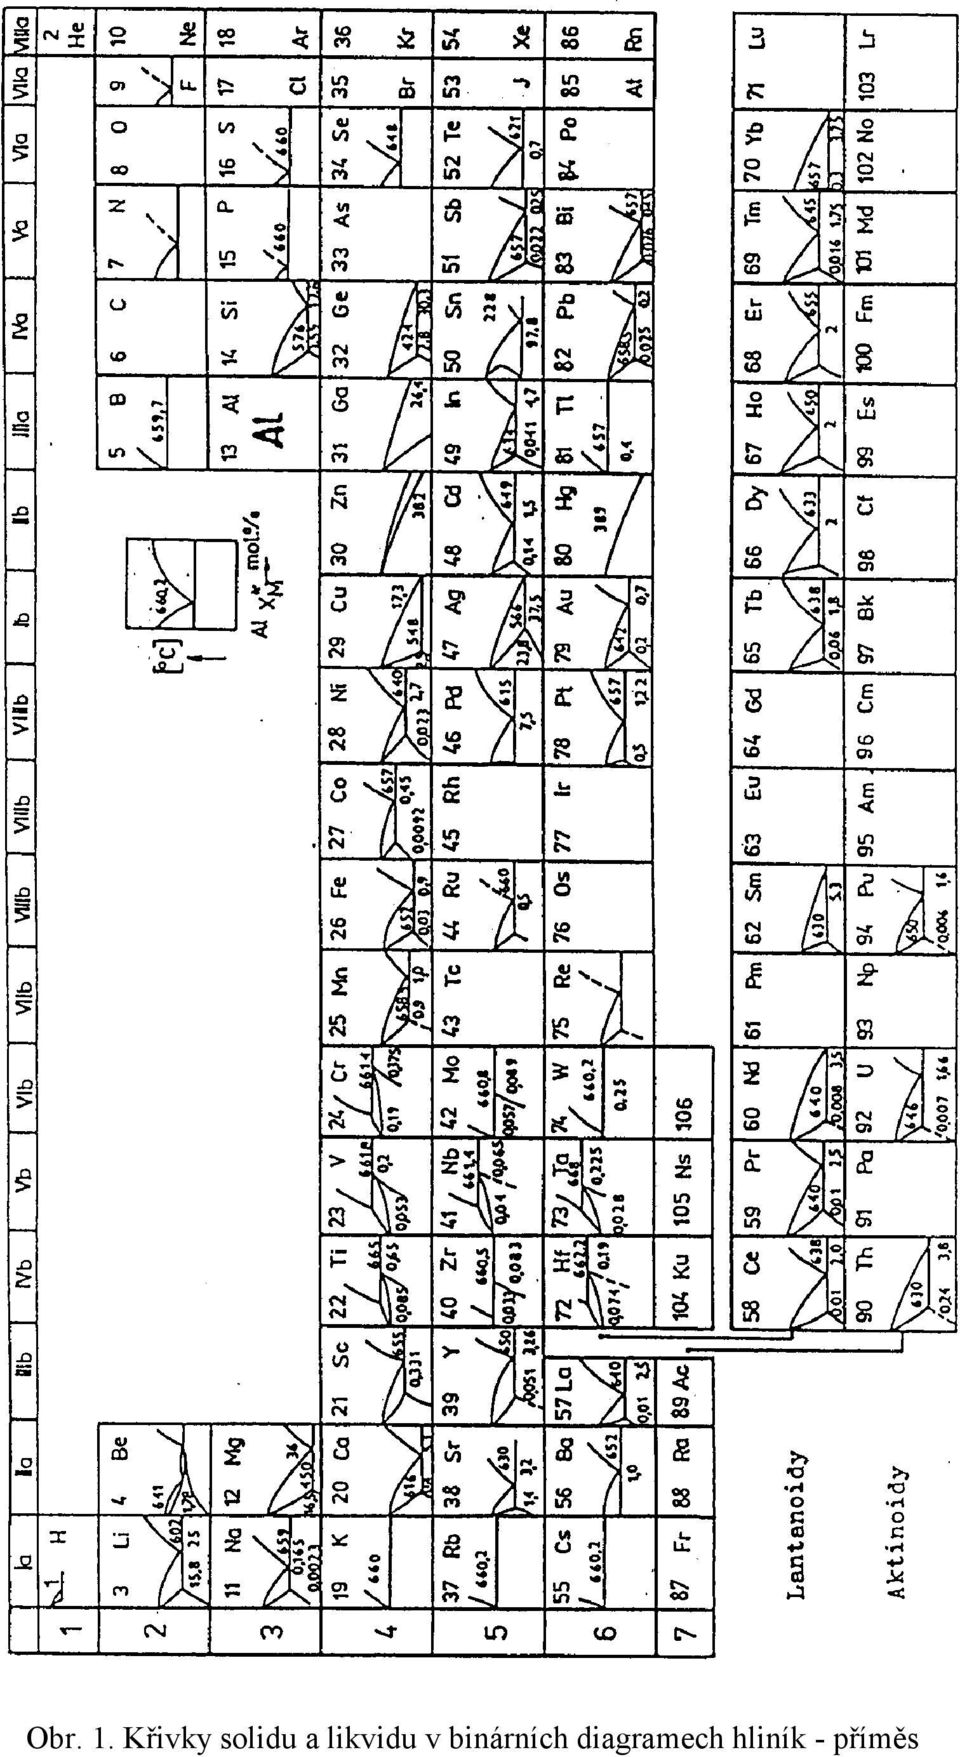 Ia IIa IIIb IVb Vb VIb VIIb VIIIb VIIIb VIIIb Ib IIb IIIa IVa Va VIa VIIa VIIIa
1
1 H
2 He
2
3 Li 602 15,8 25
4 Be 641
[°C] 660,2
Al X_M mol.%
5 B 659,7
6 C
7 N
8 O
9 F
10 Ne
3
11 Na 659 0,165 0,0023
12 Mg 36 450
13 Al
Al
14 Si 576
15 P 660
16 S 660
17 Cl
18 Ar
4
19 K 660
20 Ca 616
21 Sc 655 0,331
22 Ti 665 0,65 0,085
23 V 661,8 0,2 0,053
24 Cr 661,4 0,375 0,19
25 Mn 658,5 0,9 1,0
26 Fe 652 0,03 0,9
27 Co 657 0,45 0,0092
28 Ni 640 0,023 2,7
29 Cu 548 17,3
30 Zn 382
31 Ga 26,4
32 Ge 424 2,8 30,3
33 As
34 Se 648
35 Br
36 Kr
5
37 Rb 660,2
38 Sr 630 1,4 3,2
39 Y 650 0,051 3,26
40 Zr 660,5 0,033 0,083
41 Nb 661,4 0,04 0,065
42 Mo 660,8 0,057 0,089
43 Tc
44 Ru 660 0,5
45 Rh
46 Pd 615 7,5
47 Ag 566 23,8 37,5
48 Cd 649 0,14 1,5
49 In 634 0,041 4,7
50 Sn 228 97,8
51 Sb 657 0,022 0,25
52 Te 621 0,7
53 J
54 Xe
6
55 Cs 660,2
56 Ba 652 1,0
57 La 640 0,01 2,5
72 Hf 662,2 0,19 0,074
73 Ta 668 0,225 0,028
74 W 660,2 0,25
75 Re
76 Os
77 Ir
78 Pt 657 0,5 1,22
79 Au 642 0,2 0,7
80 Hg 389
81 Tl 657 0,4
82 Pb 658,5 0,025 0,2
83 Bi 657 0,026
84 Po
85 At
86 Rn
7
87 Fr
88 Ra
89 Ac
104 Ku
105 Ns
106
Lantanoidy
58 Ce 638 0,01 2,0
59 Pr 640 0,01 2,5
60 Nd 640 0,008 3,5
61 Pm
62 Sm 630 5,3
63 Eu
64 Gd
65 Tb 638 0,06 1,8
66 Dy 633 2
67 Ho 650 2
68 Er 655 2
69 Tm 645 0,016 1,75
70 Yb 657 0,3 3,75
71 Lu
Aktinoidy
90 Th 630 0,24 3,8
91 Pa
92 U 646 0,007 1,66
93 Np
94 Pu 650 0,004 1,6
95 Am
96 Cm
97 Bk
98 Cf
99 Es
100 Fm
101 Md
102 No
103 Lr
Obr. 1. Křivky solidu a likvidu v binárních diagramech hliník - příměs